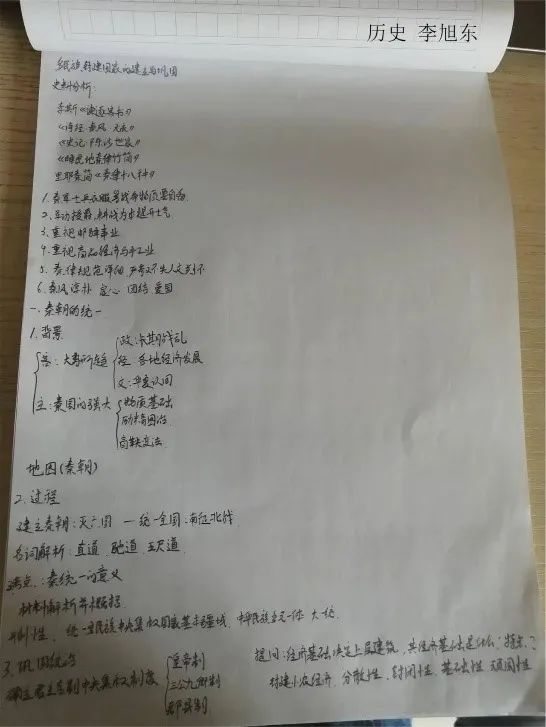 历史 李旭东
统一封建国家的建立与巩固
史料分析:
李斯《谏逐客书》
《诗经·秦风·无衣》
《史记·陈涉世家》
《睡虎地秦律竹简》
里耶秦简《秦律十八种》
1. 秦军士兵衣服等战争物质要自备
2. 军功授爵,
3. 重视邮驿事业
4. 重视商品经济与手工业
5. 秦律规范详细,严苛又不失人文关怀
6. 秦风淳朴 忠心 团结 爱国
一. 秦朝的统一
1. 背景
客: 大势所趋
政: 长期战乱
经: 各地经济发展
文: 华夏认同
主: 秦国的强大
物质基础
励精图治
商鞅变法
地图(秦朝)
2. 过程
建立秦朝: 灭六国 — 统一全国: 南征北战
名词解析: 直道 驰道 五尺道
考点: 秦统一的意义
材料解析并概括
开创性, 统一多民族中央集权国家基本疆域, 中华民族多元一体 大统
3. 巩固统治
确立君主专制中央集权制度
皇帝制
三公九卿制
郡县制
提问: 经济基础决定上层建筑, 其经济基础是什么? 特点?
封建小农经济, 分散性, 封闭性, 基础性 顽固性